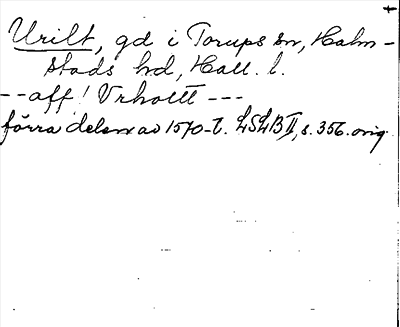 Urilt, gd i Torups sn, Halm-
stads hd, Hall. l.
--- aff! Vrholtt ---
förra delen av 1570-t. LSLB II, s. 356. orig.